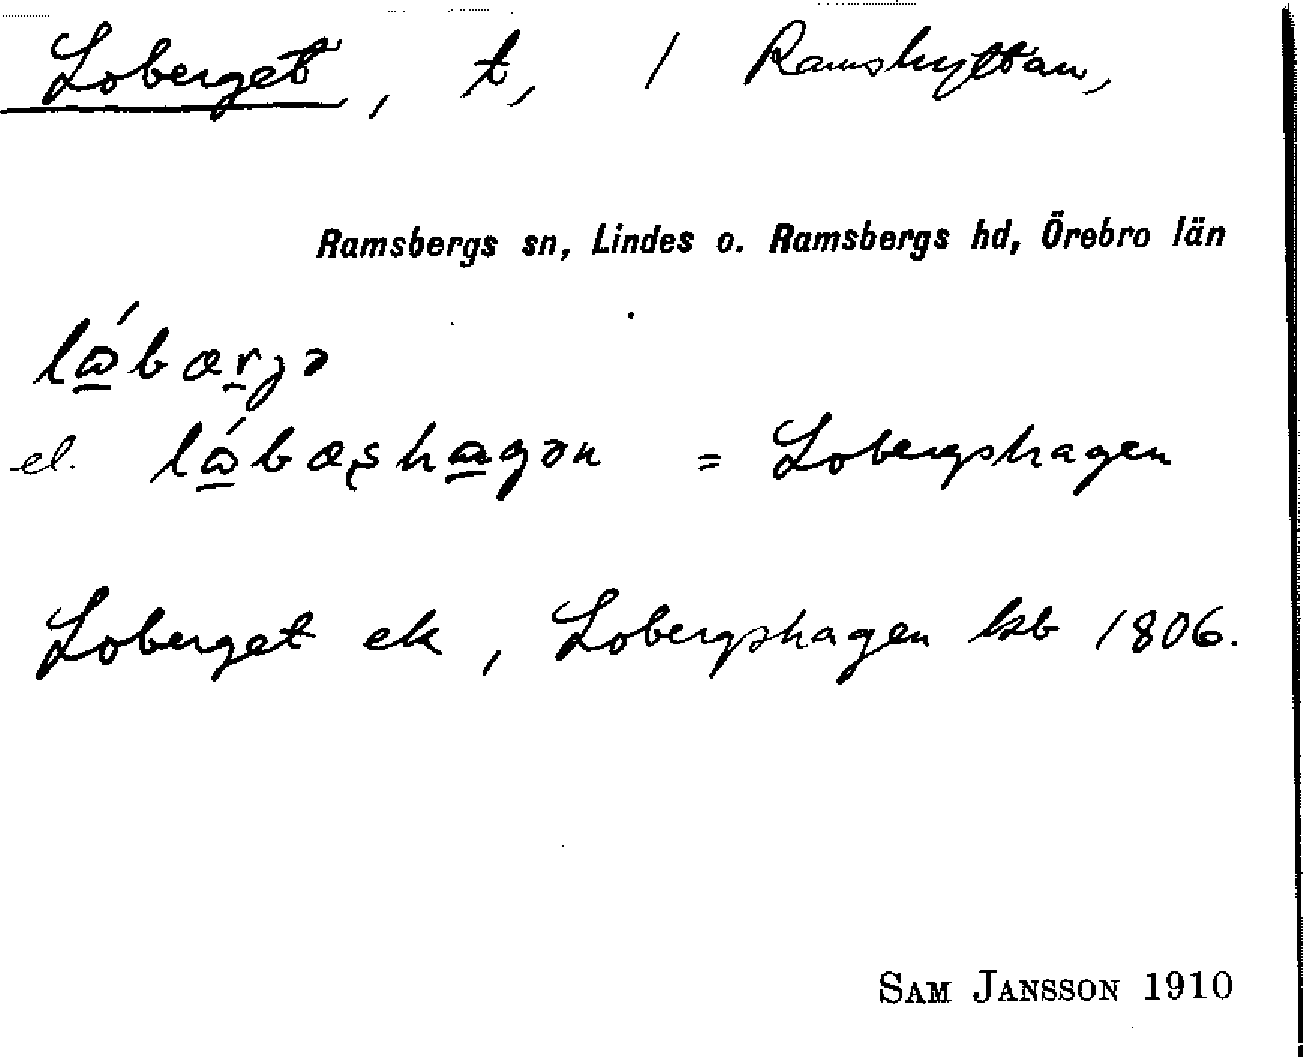 Loberget, t, / Ramshyttan,
Ramsbergs sn, Lindes o. Ramsbergs hd, Örebro län
el. = Lobergshagen
Loberget ek, Lobergshagen kb 1806.
SAM JANSSON 1910